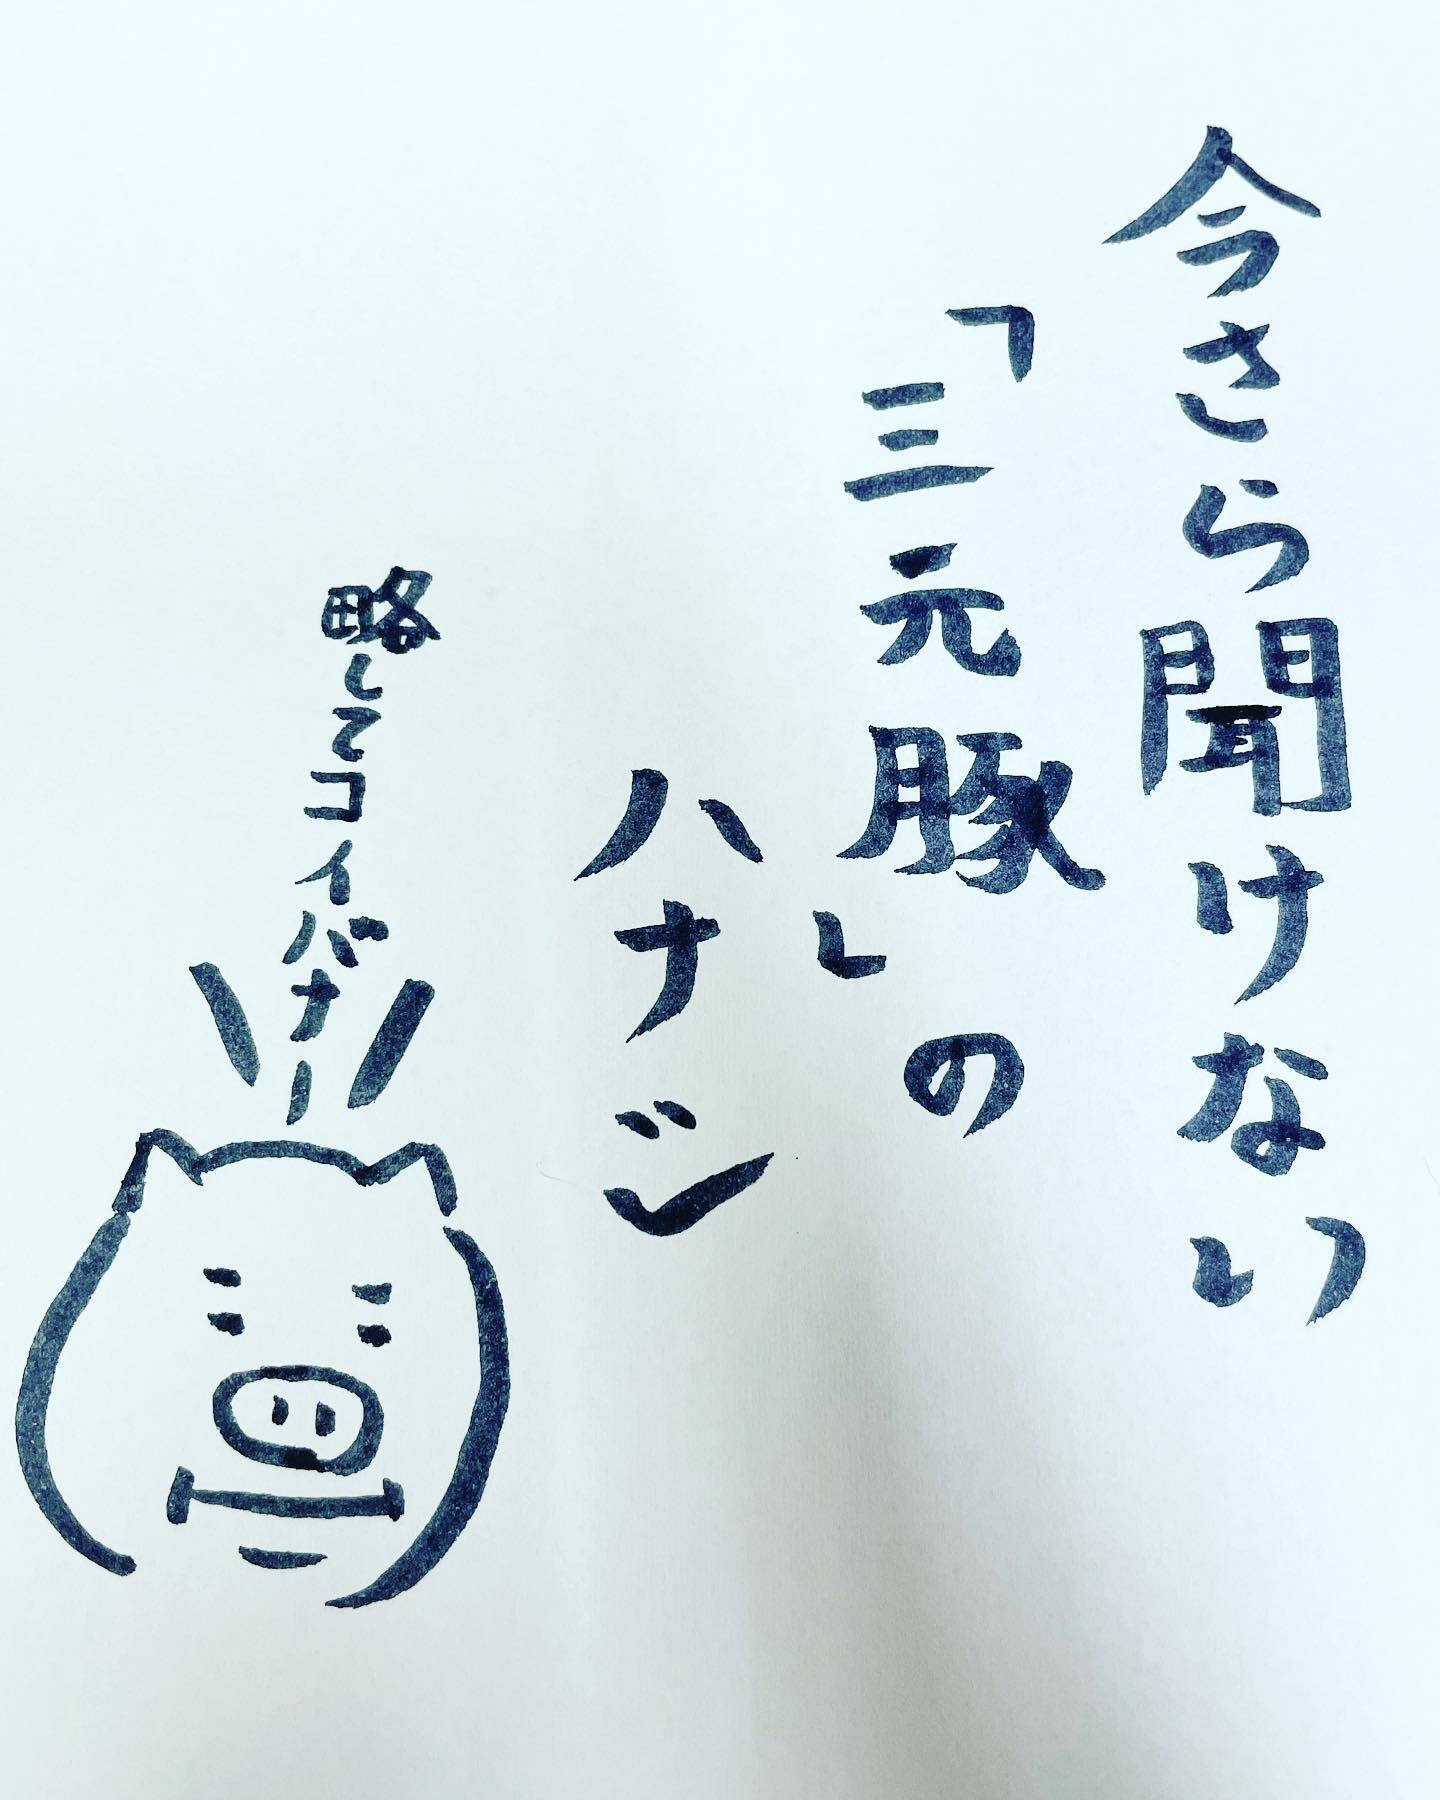 今さら聞けない
「三元豚」の
ハナシ
略してコイバナー